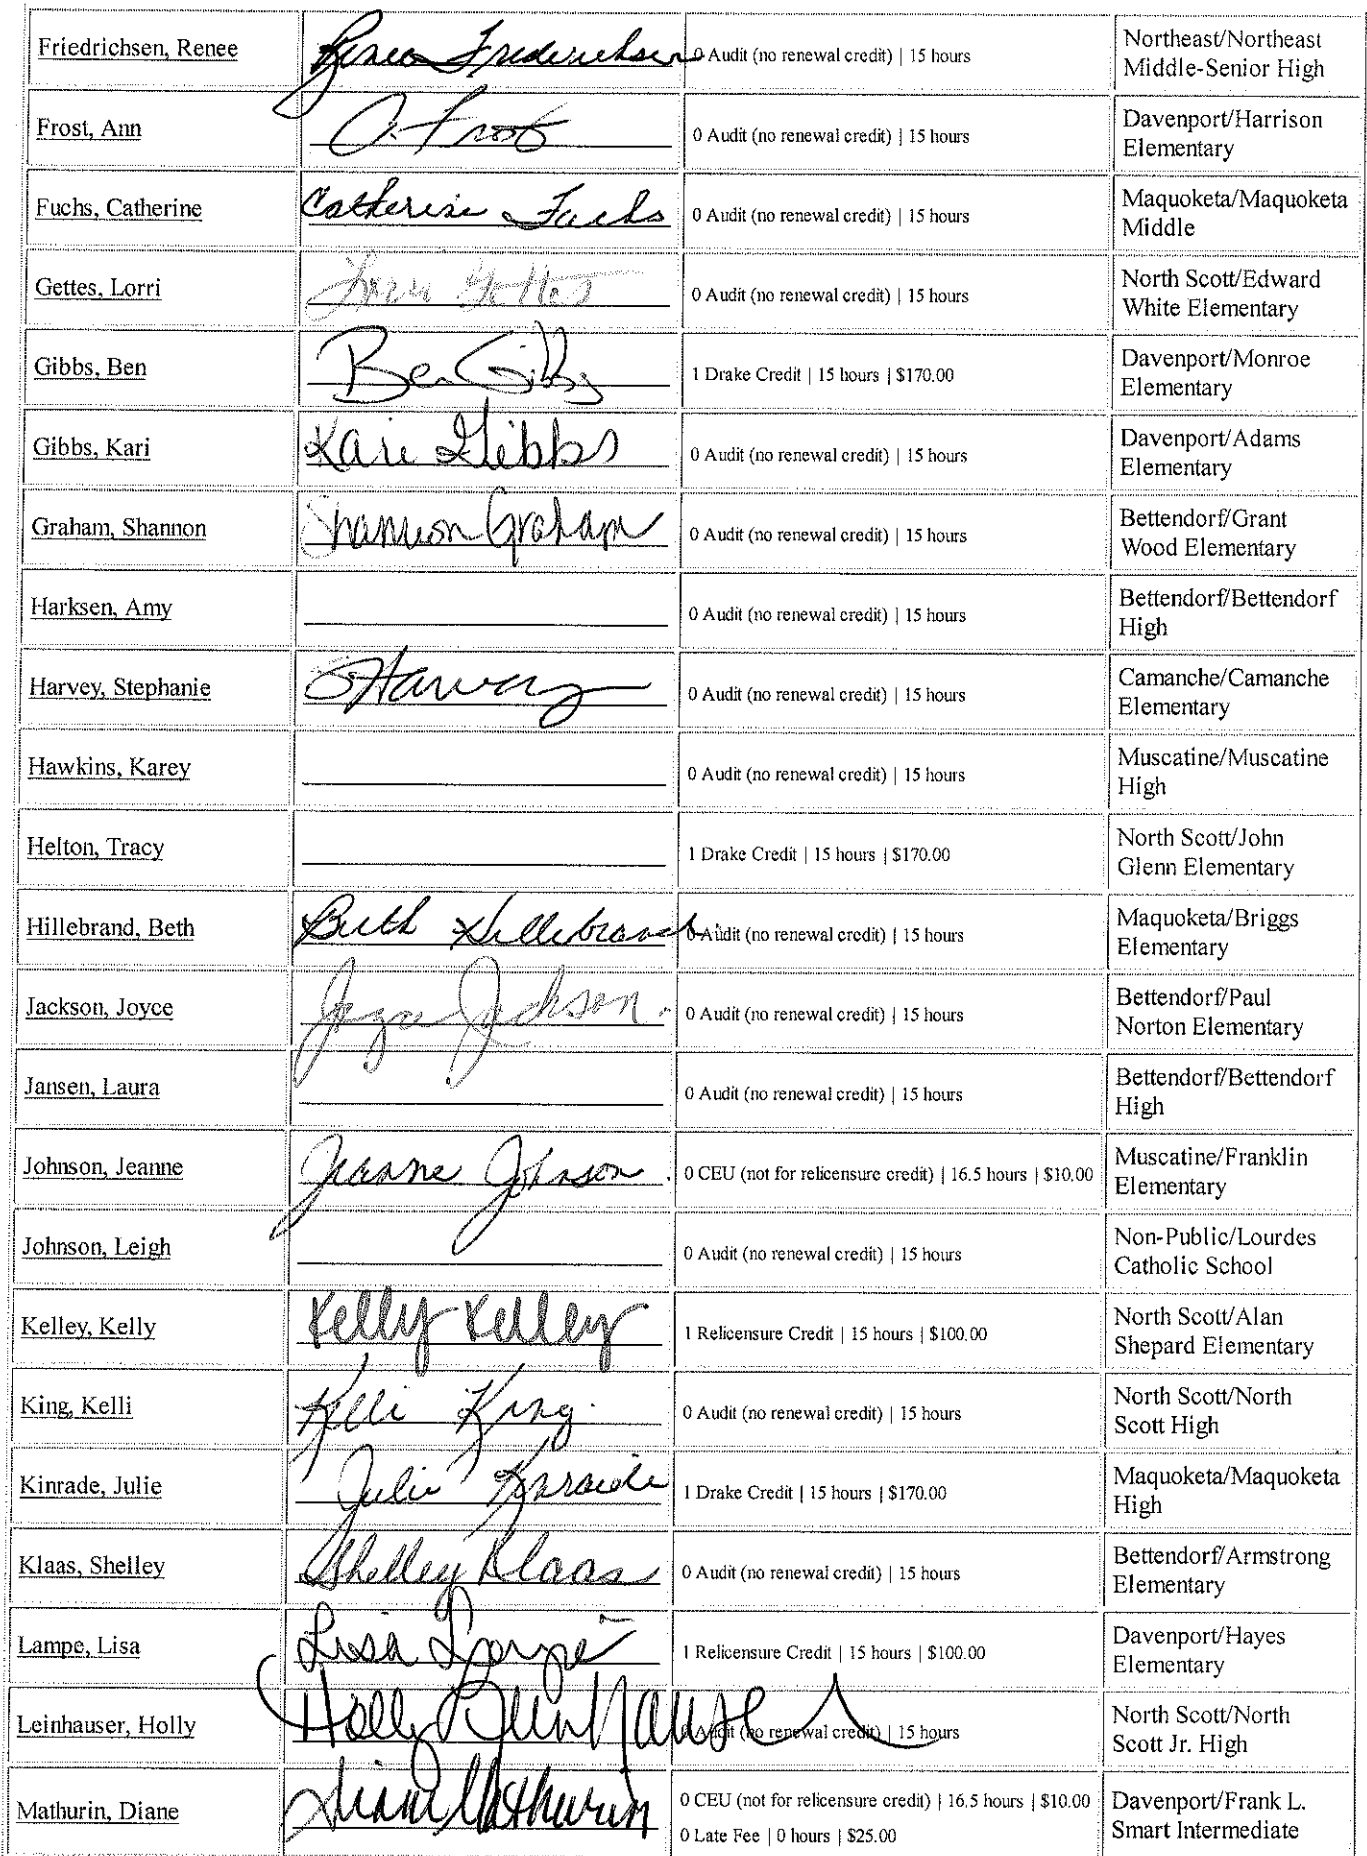 Friedrichsen, Renee
Renee Friederichsen
0 Audit (no renewal credit) | 15 hours
Northeast/Northeast
Middle-Senior High
Frost, Ann
A. Frost
0 Audit (no renewal credit) | 15 hours
Davenport/Harrison
Elementary
Fuchs, Catherine
Catherine Fuchs
0 Audit (no renewal credit) | 15 hours
Maquoketa/Maquoketa
Middle
Gettes, Lorri
Lorri Gettes
0 Audit (no renewal credit) | 15 hours
North Scott/Edward
White Elementary
Gibbs, Ben
Ben Gibbs
1 Drake Credit | 15 hours | $170.00
Davenport/Monroe
Elementary
Gibbs, Kari
Kari Gibbs
0 Audit (no renewal credit) | 15 hours
Davenport/Adams
Elementary
Graham, Shannon
Shannon Graham
0 Audit (no renewal credit) | 15 hours
Bettendorf/Grant
Wood Elementary
Harksen, Amy
0 Audit (no renewal credit) | 15 hours
Bettendorf/Bettendorf
High
Harvey, Stephanie
SHarvey
0 Audit (no renewal credit) | 15 hours
Camanche/Camanche
Elementary
Hawkins, Karey
0 Audit (no renewal credit) | 15 hours
Muscatine/Muscatine
High
Helton, Tracy
1 Drake Credit | 15 hours | $170.00
North Scott/John
Glenn Elementary
Hillebrand, Beth
Beth Hillebrand
0 Audit (no renewal credit) | 15 hours
Maquoketa/Briggs
Elementary
Jackson, Joyce
Joyce Jackson
0 Audit (no renewal credit) | 15 hours
Bettendorf/Paul
Norton Elementary
Jansen, Laura
0 Audit (no renewal credit) | 15 hours
Bettendorf/Bettendorf
High
Johnson, Jeanne
Jeanne Johnson
0 CEU (not for relicensure credit) | 16.5 hours | $10.00
Muscatine/Franklin
Elementary
Johnson, Leigh
0 Audit (no renewal credit) | 15 hours
Non-Public/Lourdes
Catholic School
Kelley, Kelly
Kelly Kelley
1 Relicensure Credit | 15 hours | $100.00
North Scott/Alan
Shepard Elementary
King, Kelli
Kelli King
0 Audit (no renewal credit) | 15 hours
North Scott/North
Scott High
Kinrade, Julie
Julie Kinrade
1 Drake Credit | 15 hours | $170.00
Maquoketa/Maquoketa
High
Klaas, Shelley
Shelley Klaas
0 Audit (no renewal credit) | 15 hours
Bettendorf/Armstrong
Elementary
Lampe, Lisa
Lisa Lampe
1 Relicensure Credit | 15 hours | $100.00
Davenport/Hayes
Elementary
Leinhauser, Holly
Holly Leinhauser
0 Audit (no renewal credit) | 15 hours
North Scott/North
Scott Jr. High
Mathurin, Diane
Diane Mathurin
0 CEU (not for relicensure credit) | 16.5 hours | $10.00
0 Late Fee | 0 hours | $25.00
Davenport/Frank L.
Smart Intermediate